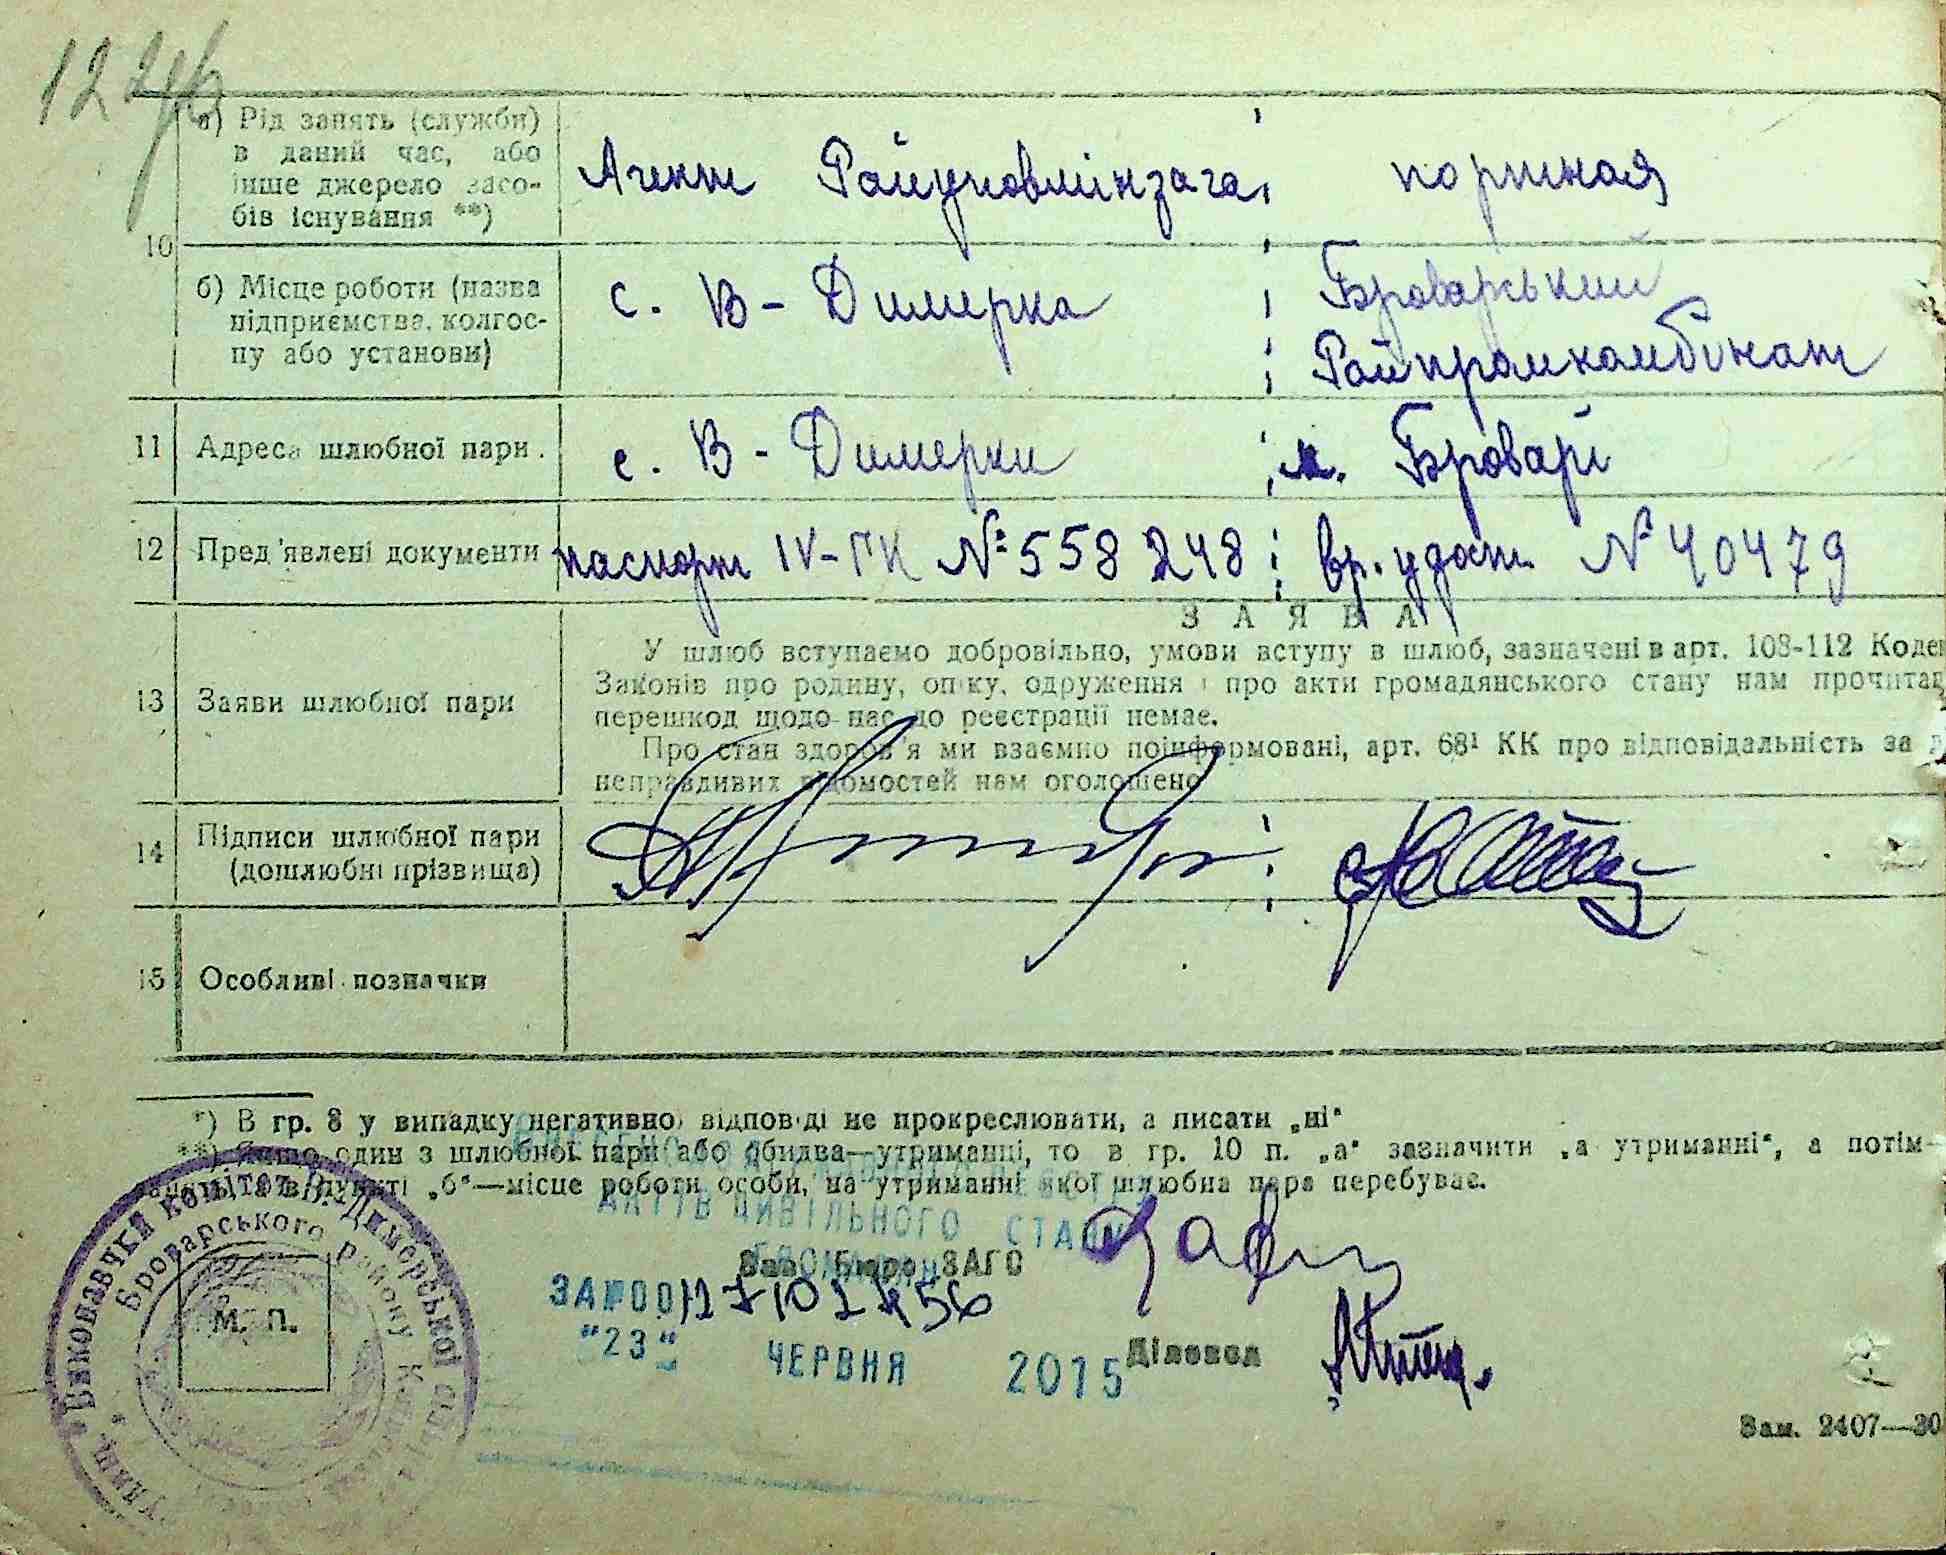 122
а) Рід занять (служби)
в даний час, або
інше джерело засо-
бів існування **)
Агент Райуповмінзага
портная
10
б) Місце роботи (назва
підприємства, колгос-
пу або установи)
с. В-Димерка
Броварський
Райпромкомбінат
11 Адреса шлюбної пари.
с. В-Димерки
м. Броварі
12 Пред'явлені документи
паспорт IV-ГК № 558248
вр. удост. № 40479
13 Заяви шлюбної пари
ЗАЯВА
У шлюб вступаємо добровільно, умови вступу в шлюб, зазначені в арт. 108-112 Коде
Законів про родину, опіку, одруження і про акти громадянського стану нам прочита
перешкод щодо нас до реєстрації немає.
Про стан здоров'я ми взаємно поінформовані, арт. 68¹ КК про відповідальність за
неправдивих відомостей нам оголошено
14 Підписи шлюбної пари
(дошлюбні прізвища)
15 Особливі позначки
*) В гр. 8 у випадку негативної відповіді не прокреслювати, а писати „ні“
**) Якщо один з шлюбної пари або обидва—утриманці, то в гр. 10 п. „а“ зазначити „а утриманні“, а потім
в пункті „б“—місце роботи особи, на утриманні якої шлюбна пара перебуває.
АКТІВ ЦИВІЛЬНОГО СТАНУ
Зав. Бюро ЗАГС
ЗА №00127102456
"23" ЧЕРВНЯ 2015
Діловод
М. П.
Виконавчий комітет В.-Димерської
Броварського району
Зам. 2407—30